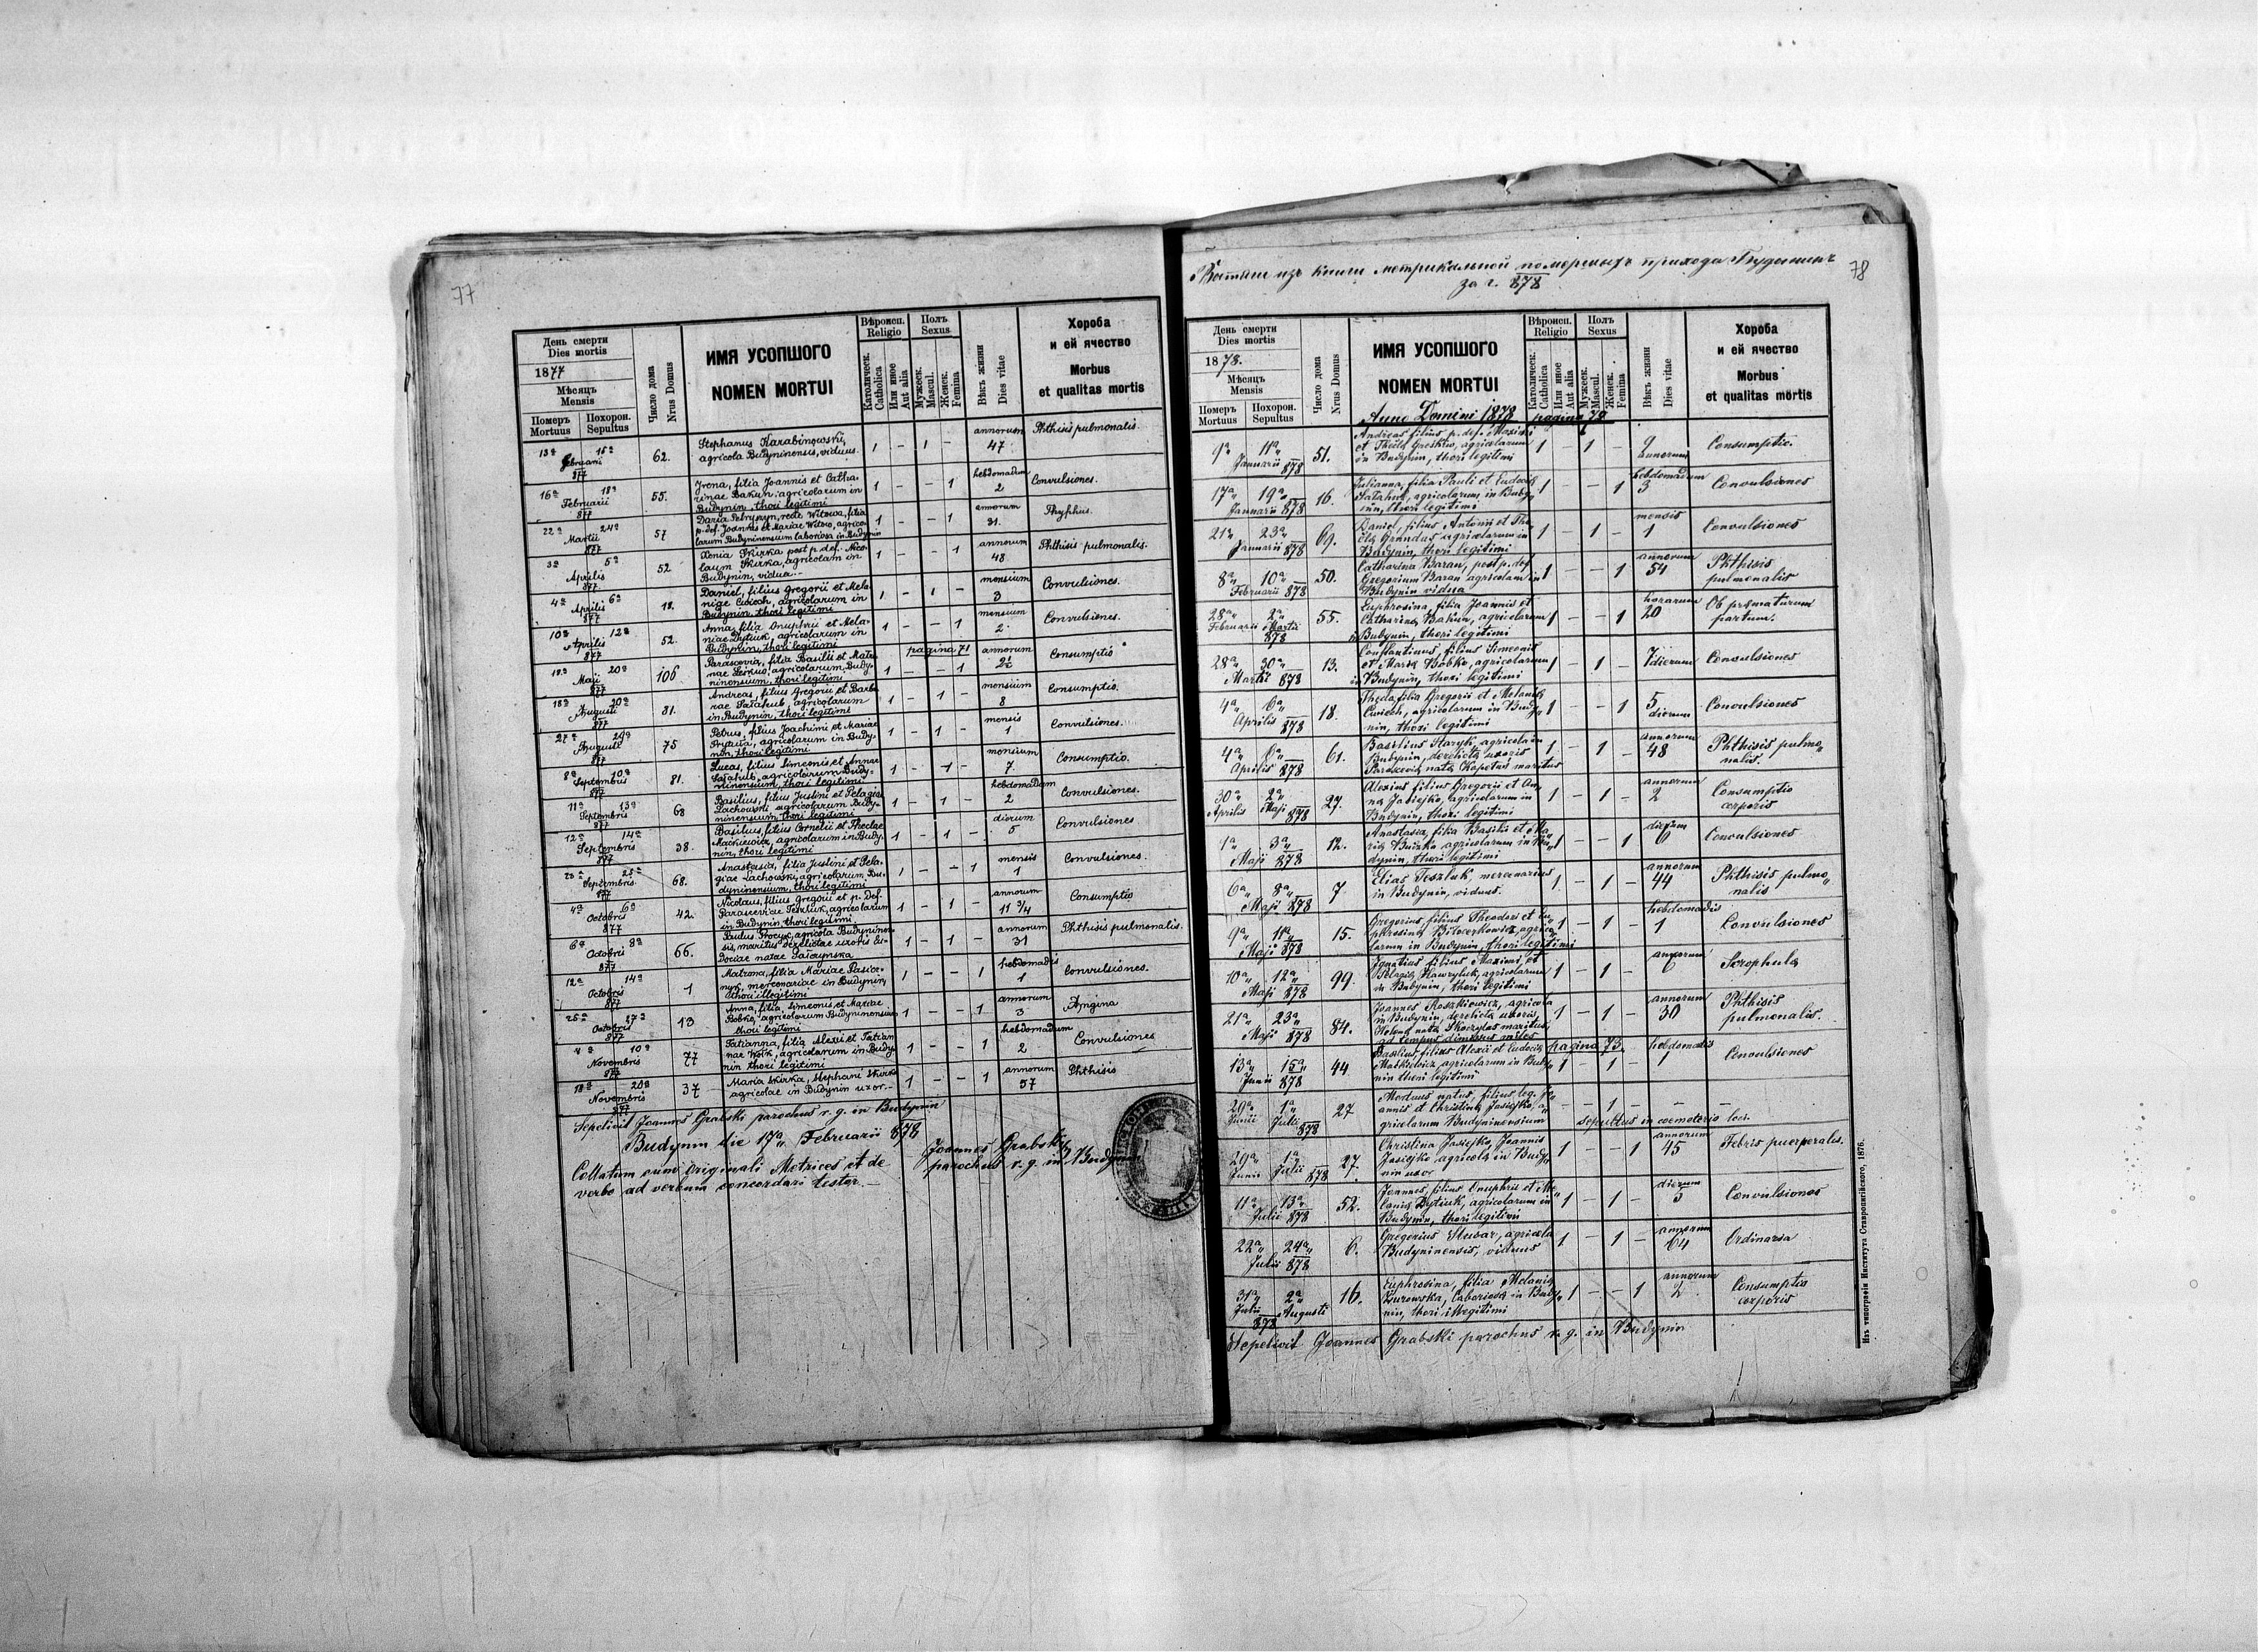 77
День смерти
Dies mortis
1877
Мѣсяць
Mensis
Померъ
Mortuus
Похорон.
Sepultus
Число дома
Nrus Domus
ИМЯ УСОПШОГО
NOMEN MORTUI
Вѣроисп.
Religio
Католическ.
Catholica
Или иное
Aut alia
Полъ
Sexus
Мужеск.
Mascul.
Женск.
Femina
Вѣкъ жизни
Dies vitae
Хороба
и ей ячество
Morbus
et qualitas mortis
13ª 15ª 62. Stephanus Karabinowski, 1 – 1 – annorum 47 Phthisis pulmonalis.
877 agricola Budyninensis, viduus.
16ª 18ª 55. Irena, filia Joannis et Catha- 1 – – 1 hebdomadum 2 Convulsiones.
Februarii rinae Bakun, agricolarum in
877 Budynin, thori legitimi
22ª 24ª 57 Daria Petryszyn, recte Witowa, filia 1 – – 1 annorum 31. Thyphus.
Martii p. def. Joannis et Mariae Witow, agrico-
877 larum Budyninensium laboriosa in Budynin
3ª 5ª 52 Xenia Skirka post p. def. Nico- 1 – – 1 annorum 48 Phthisis pulmonalis.
Aprilis laum Skirka, agricolam in
877 Budynin, vidua.
4ª 6ª 18. Daniel, filius Gregorii et Mela- 1 – 1 – mensium 3 Convulsiones.
Aprilis niae Cwiech, agricolarum in
877 Budynin, thori legitimi
10ª 12ª 52. Anna, filia Onuphrii et Mela- 1 – – 1 mensium 2. Convulsiones.
Aprilis niae Dytiuk, agricolarum in
877 Budynin, thori legitimi
pagina 71
18ª 20ª 106 Parascevia, filia Basilii et Matro- 1 – – 1 annorum Consumptio
Maji nae agricolarum Budy-
877 ninensium, thori legitimi
18ª 20ª 81. Andreas, filius Gregorii et Barba- 1 – 1 – mensium 8 Consumptio.
Augusti rae Sałahub, agricolarum
877 in Budynin, thori legitimi
27ª 29ª 75 Petrus, filius Joachimi et Mariae 1 – 1 – mensis 1 Convulsiones.
Augusti Prytuła, agricolarum in Budy-
877 nin, thori legitimi
8ª 10ª 81. Lucas, filius Simeonis et Annae 1 – 1 – mensium 7 Consumptio.
Septembris Sałahub, agricolarum Budy-
877 ninensium, thori legitimi
11ª 13ª 68 Basilius, filius Justini et Pelagiae 1 – 1 – hebdomadum 2 Convulsiones.
Septembris Lachowski agricolarum Budy-
877 ninensium thori legitimi
12ª 14ª 38. Basilius, filius Cornelii et Theclae 1 – 1 – dierum 5 Convulsiones
Septembris Mackiewicz, agricolarum in Budy-
877 nin, thori legitimi
68. Anastasia, filia Justini et Pela- 1 – – 1 mensis 1 Convulsiones.
Septembris giae Lachowski, agricolarum Bu-
877 dyninensium, thori legitimi
4ª 6ª 42. Nicolaus, filius Gregorii et p. def. 1 – 1 – annorum 11 3/4 Consumptio
Octobris Parasceviae Teszluk, agricolarum
877 in Budynin, thori legitimi
6ª 8ª 66. Paulus Procyk, agricola Budyninen- 1 – 1 – annorum 31 Phthisis pulmonalis.
Octobris sis, maritus derelictae uxoris Eu-
877 dociae natae Sałczynska
12ª 14ª 1 Matrona, filia Mariae 1 – – 1 hebdomadis 1 Convulsiones.
Octobris mercenariae in Budynin,
877 thori illegitimi
25ª 27ª 13 Anna, filia Simeonis et Mariae 1 – – 1 annorum 3 Angina
Octobris Bobko, agricolarum Budyninensium
877 thori legitimi
10ª 77 Tatianna, filia Alexii et Tatian- 1 – – 1 hebdomadum 2 Convulsiones
Novembris nae Wołk, agricolarum in Budy-
877 nin thori legitimi
18ª 20ª 37 Maria Skirka, Stephani Skirka 1 – – 1 annorum 57 Phthisis
Novembris agricolae in Budynin uxor.
877
Sepelivit Joannes Grabski parochus r. g. in Budynin
Budynin die 17ª Februarii 878
Collatum cum originali Metrices et de
verbo ad verbum concordari testor.
Joannes Grabski
parochus r. g. in Budynin
78
книги метрикальной померлыхъ прихода Будынинъ
за г. 878
День смерти
Dies mortis
1878.
Мѣсяць
Mensis
Померъ
Mortuus
Похорон.
Sepultus
Число дома
Nrus Domus
ИМЯ УСОПШОГО
NOMEN MORTUI
Вѣроисп.
Religio
Католическ.
Catholica
Или иное
Aut alia
Полъ
Sexus
Мужеск.
Mascul.
Женск.
Femina
Вѣкъ жизни
Dies vitae
Хороба
и ей ячество
Morbus
et qualitas mortis
Anno Domini 1878 pagina 72
9ª 11ª 51. Andreas filius p. def. Maximi 1 – 1 – 9 annorum Consumptio.
Januarii 878 et Theclę agricolarum
in Budynin, thori legitimi
17ª 19ª 16. Julianna, filia Pauli et Eudocię 1 – – 1 hebdomadum 3 Convulsiones
Januarii 878 Sałahub, agricolarum in Budy-
nin, thori legitimi
21ª 23ª 69. Daniel, filius Antonii et The- 1 – 1 – mensis 1 Convulsiones
Januarii 878 clę Grondus agricolarum in
Budynin, thori legitimi
8ª 10ª 50. Catharina Baran, post p. def. 1 – – 1 annorum 54 Phthisis
Februarii 878 Gregorium Baran agricolam in pulmonalis
Budynin vidua
28ª 2ª 55. Euphrosina, filia Joannis et 1 – – 1 horarum 20 Ob pręmaturum
Februarii Martii Catharinę Bakun, agricolarum partum.
878 in Budynin, thori legitimi
28ª 30ª 13. Constantinus, filius Simeonis 1 – 1 – 7 dierum Convulsiones
Martii 878 et Marię Bobko, agricolarum
in Budynin, thori legitimi
4ª 6ª 18. Thecla, filia Gregorii et Melanię 1 – – 1 5 dierum Convulsiones
Aprilis 878 Cwiech, agricolarum in Budy-
nin, thori legitimi
4ª 6ª 61. Basilius Staryk, agricola in 1 – 1 – annorum 48 Phthisis pulmo-
Aprilis 878 Budynin, derelictę uxoris nalis.
Parascevię natę maritus
30ª 2ª 27. Alexius filius Gregorii et An- 1 – 1 – annorum 2 Consumptio
Aprilis Maji 878 nę Jasiejko, agricolarum in corporis
Budynin, thori legitimi
1ª 3ª 12. Anastasia, filia Basilii et Ma- 1 – – 1 dierum Convulsiones
Maji 878 rię agricolarum in Bu-
dynin, thori legitimi
6ª 8ª 7. Elias Teszluk, mercenarius 1 – 1 – annorum 44 Phthisis pulmo-
Maji 878 in Budynin, viduus. nalis
9ª 11ª 15. Gregorius, filius Theodori et Eu- 1 – 1 – hebdomadis 1 Convulsiones
Maji 878 phrosinę agrico-
larum in Budynin, thori legitimi
10ª 12ª 99. Ignatius filius Maximi et 1 – 1 – annorum Scrophulę
Maji 878 Pelagię Hawryluk, agricolarum
in Budynin, thori legitimi
21ª 23ª 84. Joannes Roszkiewicz, agricola 1 – 1 – annorum 30 Phthisis
Maji 878 in Budynin, derelictę uxoris pulmonalis.
Helenę natę Skoczylas maritus,
ad tempus dimissus miles
pagina 73.
13ª 15ª 44 Basilius, filius Alexii et Eudocię 1 – 1 – hebdomadis 1 Convulsiones
Junii 878 Mackiewicz, agricolarum in Budy-
nin thori legitimi
29ª 1ª 27 Mortuus natus, filius leg. Jo- – – 1 – – –
Junii Julii annis et Christinę Jasiejko, a-
878 gricolarum Budyninensium sepultus in coemeterio loci.
29ª 1ª 27. Christina Jasiejko, Joannis 1 – – 1 annorum 45 Febris puerperalis.
Junii Julii 878 Jasiejko agricolę in Budy-
nin uxor
11ª 13ª 52. Joannes, filius Onuphrii et Me- 1 – 1 – dierum 3 Convulsiones
Julii 878 lanię Dytiuk, agricolarum in
Budynin, thori legitimi
22ª 24ª 6. Gregorius agricola 1 – 1 – annorum 64 Ordinaria
Julii 878 Budyninensis, viduus
31ª 2ª 16. Euphrosina, filia Melanię 1 – – 1 annorum 2 Consumptio
Julii Augusti Żurowska, laboriosę in Budy- corporis
878 nin, thori illegitimi
Sepelivit Joannes Grabski parochus r. g. in Budynin
Изъ типографіи Института Ставропигійского, 1876.